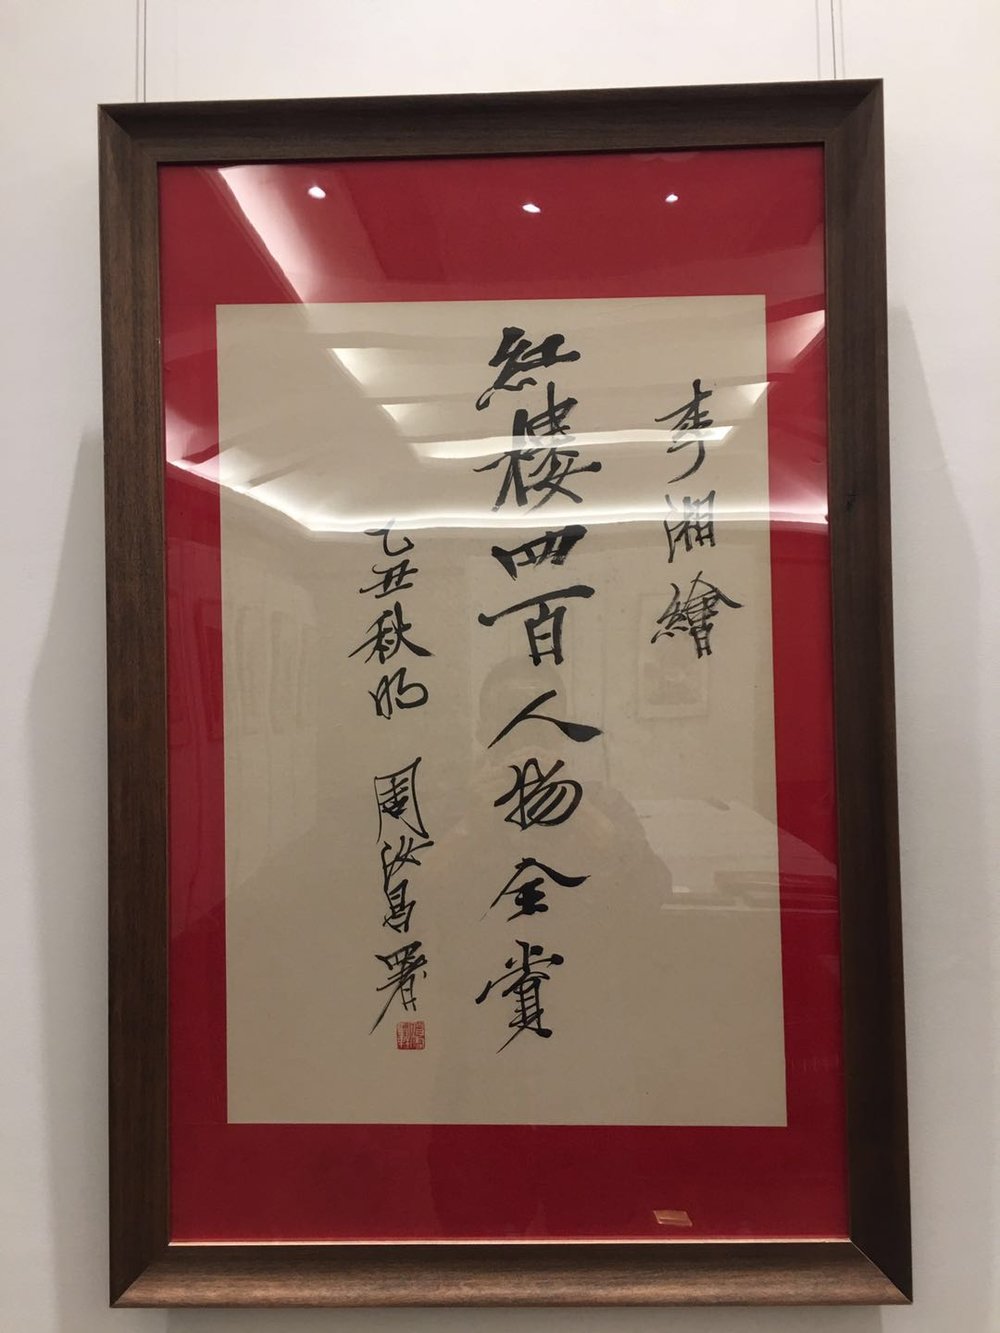 李湘繪
紅樓四百人物全賞
乙丑秋明 周汝昌署